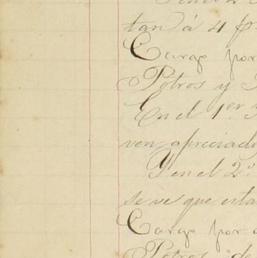 tan á 4 fr
Carap por
Potros y
En el 1er
ven apreciado
Y en el 2º
se ve que esta
Carap por
Potros de